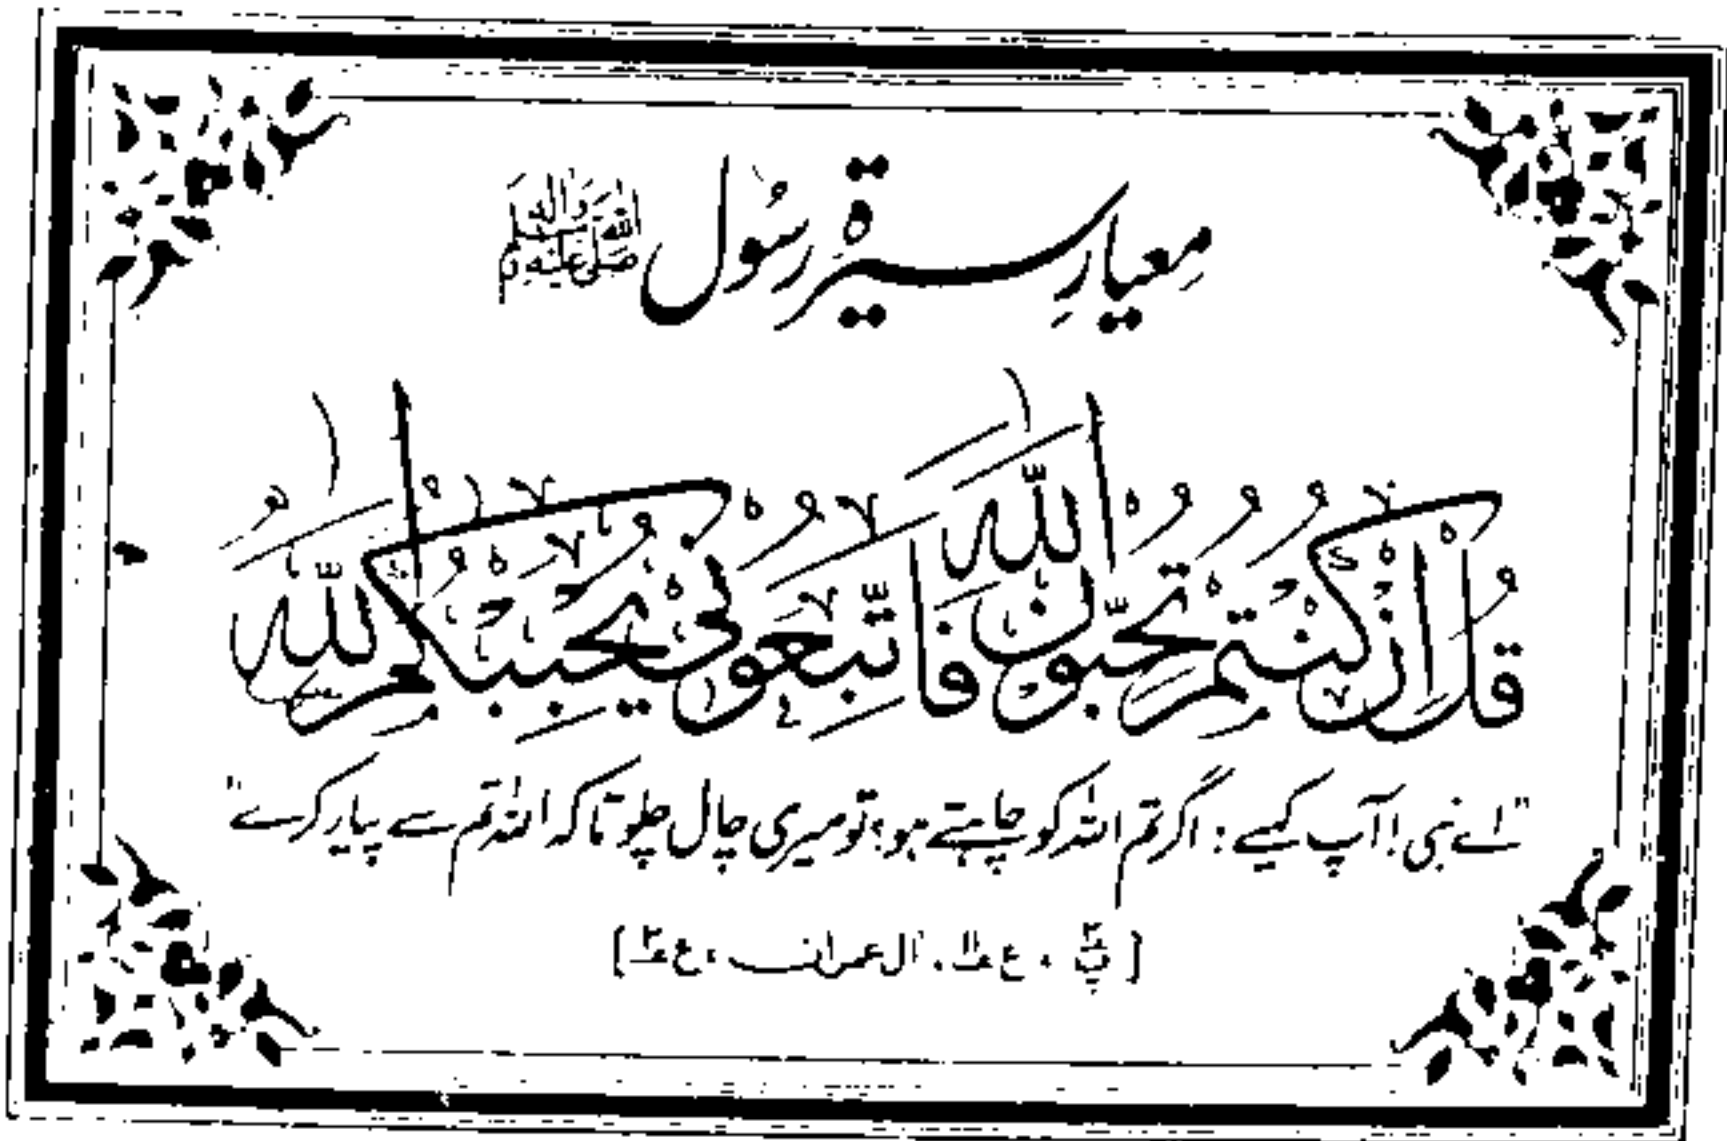 معیارِ سیرۃ رسُول صَلَّی اللہُ عَلَیْہِ وَاٰلِہٖ وَسَلَّم
قُلْ اِنْ كُنْتُمْ تُحِبُّوْنَ اللّٰهَ فَاتَّبِعُوْنِیْ یُحْبِبْكُمُ اللّٰهُ
"اے نبی! آپ کہیے: اگر تم اللہ کو چاہتے ہو، تو میری چال چلو تاکہ اللہ تم سے پیار کرے"
[پ ۳ ، ع ، اٰل عمران ، ع]